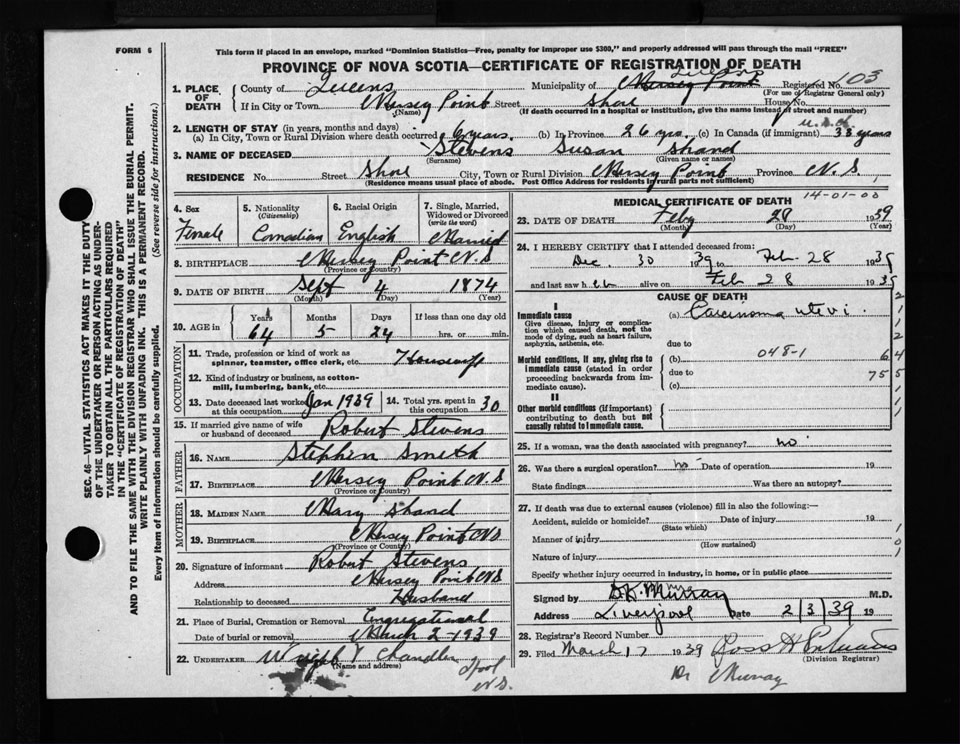 FORM 6
This form if placed in an envelope, marked "Dominion Statistics—Free, penalty for improper use $300," and properly addressed will pass through the mail "FREE"
PROVINCE OF NOVA SCOTIA—CERTIFICATE OF REGISTRATION OF DEATH
SEC. 46—VITAL STATISTICS ACT MAKES IT THE DUTY
OF THE UNDERTAKER OR PERSON ACTING AS UNDER-
TAKER TO OBTAIN ALL THE PARTICULARS REQUIRED
IN THE "CERTIFICATE OF REGISTRATION OF DEATH"
AND TO FILE THE SAME WITH THE DIVISION REGISTRAR WHO SHALL ISSUE THE BURIAL PERMIT.
WRITE PLAINLY WITH UNFADING INK. THIS IS A PERMANENT RECORD.
Every item of information should be carefully supplied. (See reverse side for instructions.)
1. PLACE OF DEATH County of Queens Municipality of Mersey Point Liverpool Registered No. 103
(For use of Registrar General only)
If in City or Town Mersey Point Street Shore House No.
(Name) (If death occurred in a hospital or institution, give the name instead of street and number)
2. LENGTH OF STAY (in years, months and days)
(a) In City, Town or Rural Division where death occurred 6 years. (b) In Province 26 yrs. (c) In Canada (if immigrant) 33 years
3. NAME OF DECEASED Stevens Susan Shand
(Surname) (Given name or names)
RESIDENCE No. Street Shore City, Town or Rural Division Mersey Point Province N.S.
(Residence means usual place of abode. Post Office Address for residents in rural parts not sufficient)
4. Sex Female
5. Nationality (Citizenship) Canadian
6. Racial Origin English
7. Single, Married, Widowed or Divorced (write the word) Married
8. BIRTHPLACE Mersey Point N.S
(Province or Country)
9. DATE OF BIRTH Sept 4 1874
(Month) (Day) (Year)
10. AGE in Years Months Days If less than one day
64 5 24 hrs. or min.
OCCUPATION
11. Trade, profession or kind of work as spinner, teamster, office clerk, etc. Housewife
12. Kind of industry or business, as cotton-mill, lumbering, bank, etc.
13. Date deceased last worked at this occupation Jan 1939 14. Total yrs. spent in this occupation 30
15. If married give name of wife or husband of deceased Robert Stevens
FATHER
16. NAME Stephen Smith
17. BIRTHPLACE Mersey Point N.S
(Province or Country)
MOTHER
18. MAIDEN NAME Mary Shand
19. BIRTHPLACE Mersey Point NS
(Province or Country)
20. Signature of informant Robert Stevens
Address Mersey Point NS
Relationship to deceased Husband
21. Place of Burial, Cremation or Removal Congregational
Date of burial or removal March 2-1939
22. UNDERTAKER Chandler
(Name and address)
N.S.
MEDICAL CERTIFICATE OF DEATH
14-01-00
23. DATE OF DEATH Feby 28 1939
(Month) (Day) (Year)
24. I HEREBY CERTIFY that I attended deceased from:
Dec. 30 1939 to Feb. 28 1939
and last saw her alive on Feb 28 1939
CAUSE OF DEATH
I
Immediate cause
Give disease, injury or complication which caused death, not the mode of dying, such as heart failure, asphyxia, asthenia, etc.
(a) Carcinoma uteri.
due to
Morbid conditions, if any, giving rise to immediate cause (stated in order proceeding backwards from immediate cause).
(b) 048-1
due to
(c)
II
Other morbid conditions (if important) contributing to death but not causally related to immediate cause.
25. If a woman, was the death associated with pregnancy? no
26. Was there a surgical operation? no Date of operation 19
State findings Was there an autopsy?
27. If death was due to external causes (violence) fill in also the following:—
Accident, suicide or homicide? Date of injury 19
(State which)
Manner of injury
(How sustained)
Nature of injury
Specify whether injury occurred in industry, in home, or in public place
Signed by Murray M.D.
Address Liverpool Date 2/3/39 19
28. Registrar's Record Number
29. Filed March 17 1939 Ross H
(Division Registrar)
Dr Murray